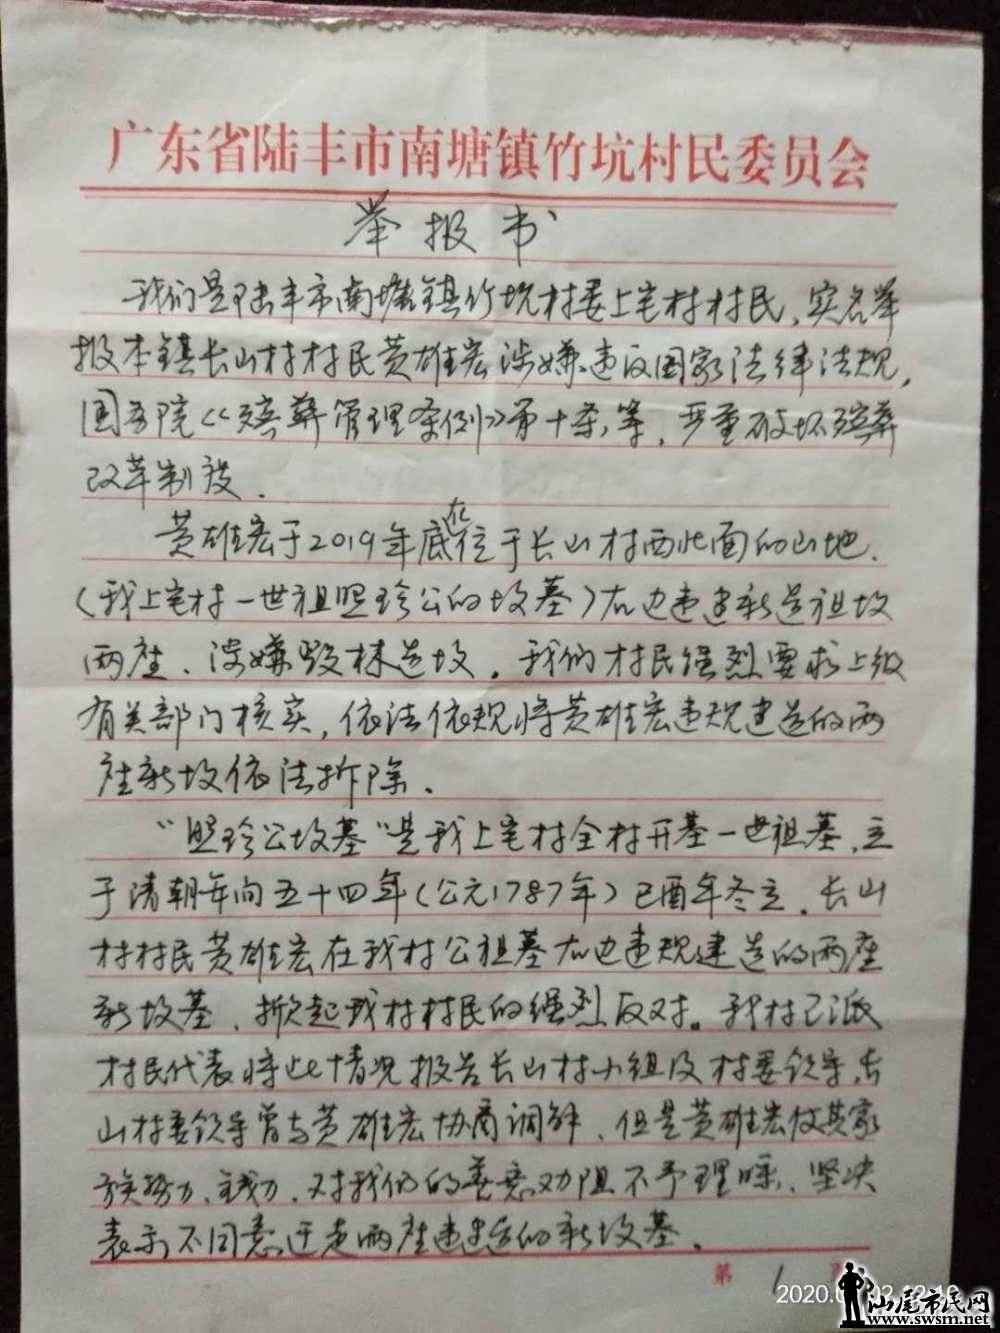 广东省陆丰市南塘镇竹坑村民委员会
举报书
我们是陆丰市南塘镇竹坑村委上宅村村民，实名举
报本镇长山村村民黄雄宏涉嫌违反国家法律法规，
国务院《殡葬管理条例》第十条，等，严重破坏殡葬
改革制度．
黄雄宏于2019年底在位于长山村西北面的山地．
（我上宅村一世祖照珍公的坟墓）右边违建新造祖坟
两座、涉嫌毁林造坟．我们村民强烈要求上级
有关部门核实，依法依规将黄雄宏违规建造的两
座新坟依法拆除．
“照珍公坟墓”是我上宅村全村开基一世祖墓，立
于清朝年间五十四年（公元1787年）己酉年冬立．长山
村村民黄雄宏在我村公祖墓右边违规建造的两座
新坟墓、掀起我村村民的强烈反对。我村已派
村民代表将此情况报告长山村小组及村委领导，长
山村委领导曾与黄雄宏协商调解、但是黄雄宏仗其家
族势力、钱力、对我们的善意劝阻不予理睬、坚决
表示不同意迁走两座违建造的新坟墓．
第 1
2020.
12:10
汕尾市民网
www.swsm.net